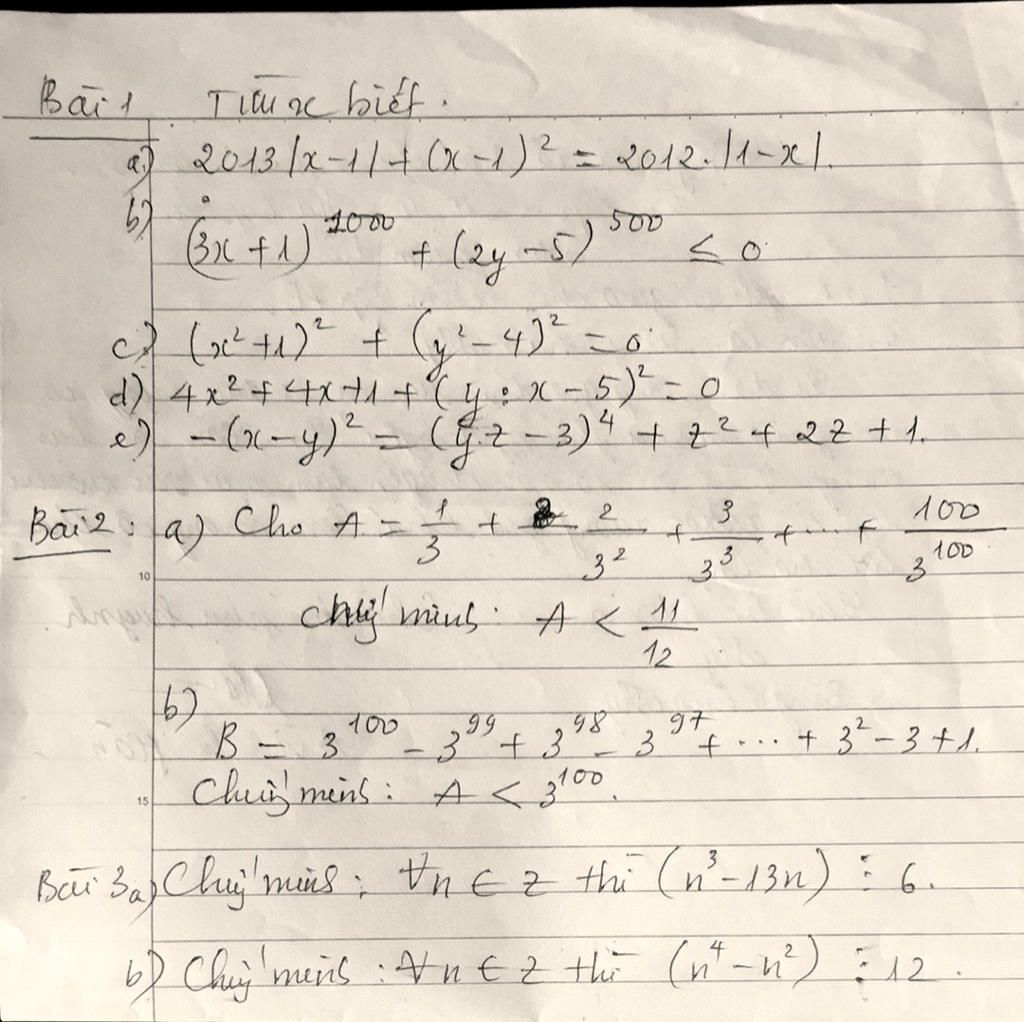 Bài 1 Tìm x biết.
a) 2013|x-1| + (x-1)² = 2012.|1-x|.
b) (3x+1)¹⁰⁰⁰ + (2y-5)⁵⁰⁰ ≤ 0
c) (x²+1)² + (y²-4)² = 0
d) 4x² + 4x+1 + (y : x - 5)² = 0
e) -(x-y)² = (y.z - 3)⁴ + z² + 2z + 1.
Bài 2 : a) Cho A = 1/3 + 2/3² + 3/3³ + ... + 100/3¹⁰⁰
Chứng minh: A < 11/12
b) B = 3¹⁰⁰ - 3⁹⁹ + 3⁹⁸ - 3⁹⁷ + ... + 3² - 3 + 1.
Chứng minh: A < 3¹⁰⁰.
Bài 3 a) Chứng minh: ∀n ∈ Z thì (n³ - 13n) ⋮ 6.
b) Chứng minh: ∀n ∈ Z thì (n⁴ - n²) ⋮ 12.
10
15